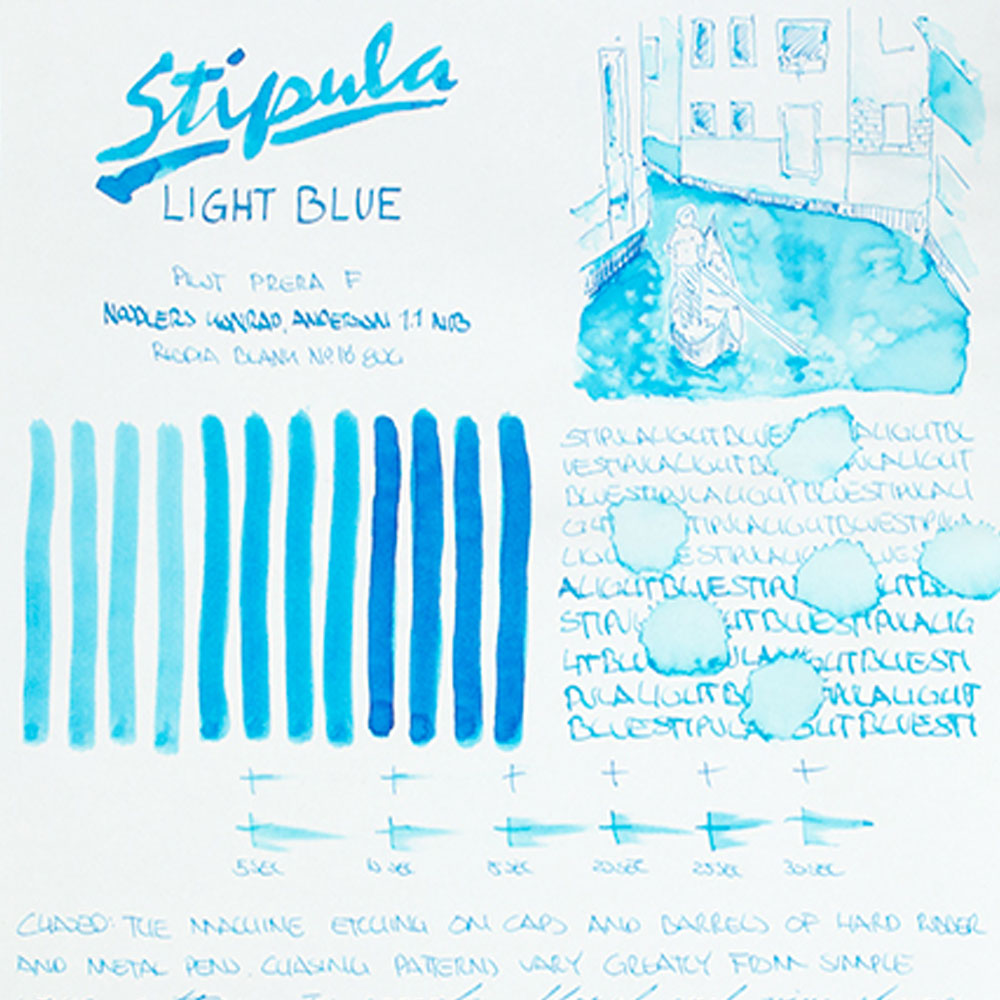 Stipula
LIGHT BLUE
PILOT PRERA F
NOODLERS KONRAD, ANDERSON 1.1 NIB
RHODIA BLANK No 16 80G
STIPULALIGHTBLUE ALIGHTBL
UESTIPULALIGHTBL ULALIGHT
BLUESTIPULALIGHTBLUESTIPULALI
GHT TIPULALIGHTBLUESTIPULA
LIG ESTIPULALIG UES
ALIGHTBLUESTIP LIGHTBL
STIPUL HTBLUESTIPULALIG
HTBLU ULALIGHTBLUESTI
PULALIGHTBL PULALIGHT
BLUESTIPULA GHTBLUESTI
5 SEC 10 SEC 15 SEC 20 SEC 25 SEC 30 SEC
CHASED: THE MACHINE ETCHING ON CAPS AND BARRELS OF HARD RUBBER
AND METAL PENS. CHASING PATTERNS VARY GREATLY FROM SIMPLE